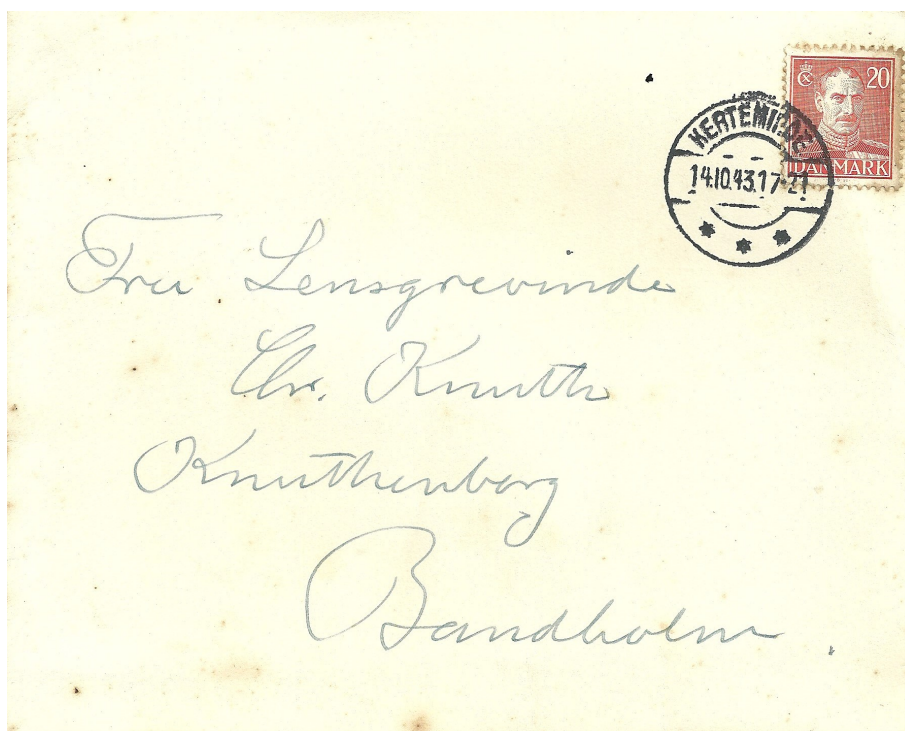 20
DANMARK
KERTEMINDE
14.10.43.17-21
Fru Lensgrevinde
Chr. Knuth
Knuthenborg
Bandholm.